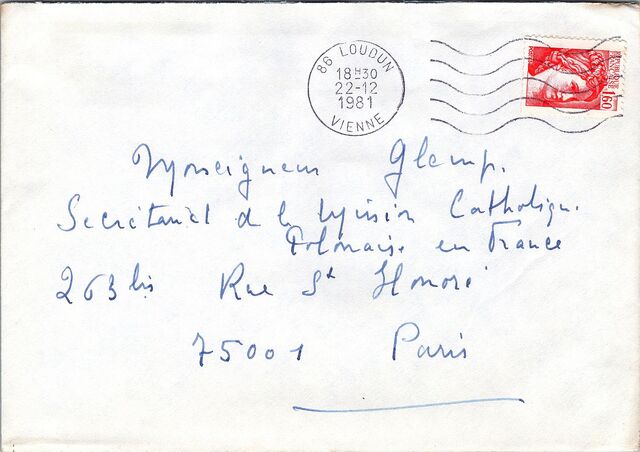 86 LOUDUN
18H30
22-12
1981
VIENNE
1,60
Monseigneur Glemp.
Secrétariat de la Mission Catholique
Polonaise en France
263 bis Rue St Honoré
75001 Paris